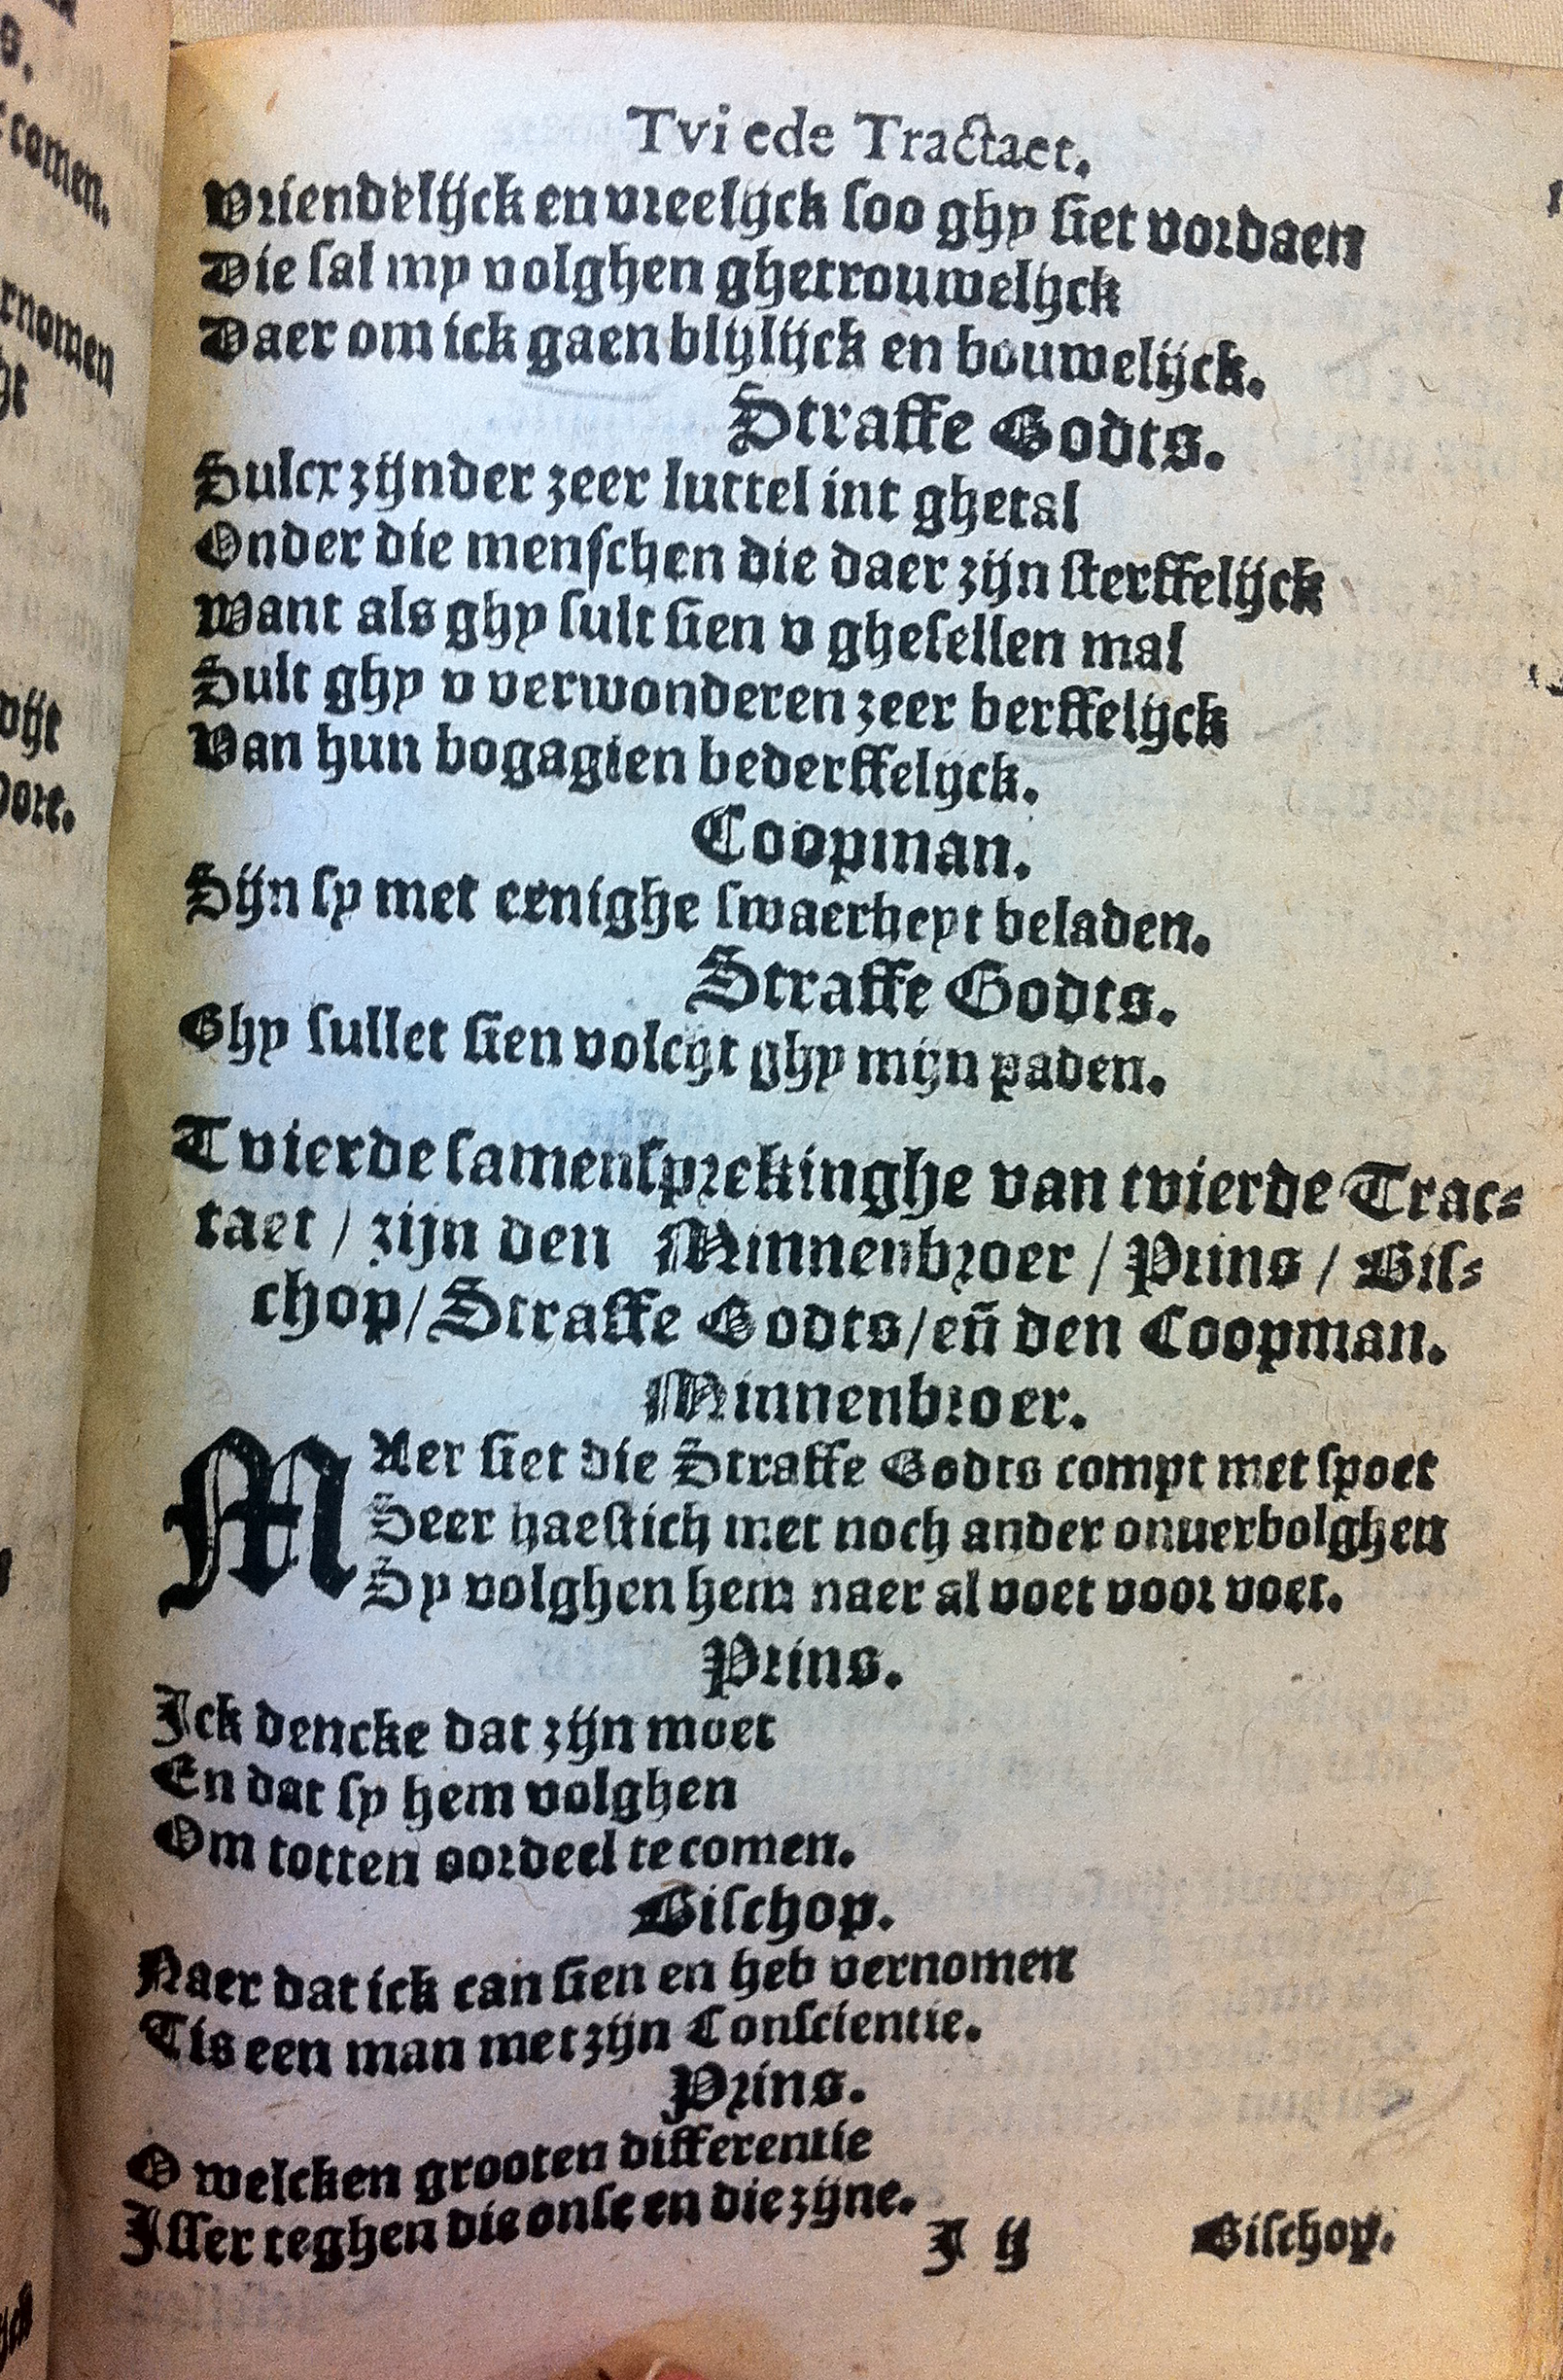 Tvi ede Tractaet.
Vriendelijck en vreelijck soo ghy siet vordaen
Die sal my volghen ghetrouwelijck
Daer om ick gaen blijlijck en bouwelijck.
Straffe Godts.
Sulcx zijnder zeer luttel int ghetal
Onder die menschen die daer zijn sterffelijck
Want als ghy sult sien v ghesellen mal
Sult ghy v verwonderen zeer derffelijck
Van hun bogagien bederffelijck.
Coopman.
Sijn sy met eenighe swaerheyt beladen.
Straffe Godts.
Ghy sullet sien volcht ghy mijn paden.
Tvierde samensprekinghe van tvierde Trac-
taet / zijn den Minnenbroer / Prins / Bis-
chop/Straffe Godts/eñ den Coopman.
Minnenbroer.
MAer siet die Straffe Godts compt met spoet
Seer haestich met noch ander onuerbolghen
Sy volghen hem naer al voet voor voet.
Prins.
Ick dencke dat zijn moet
En dat sy hem volghen
Om totten oordeel te comen.
Bisschop.
Naer dat ick can sien en heb vernomen
Tis een man met zijn Conscientie.
Prins.
O welcken grooten differentie
Isser teghen die onse en die zijne.
I ij Bischop.